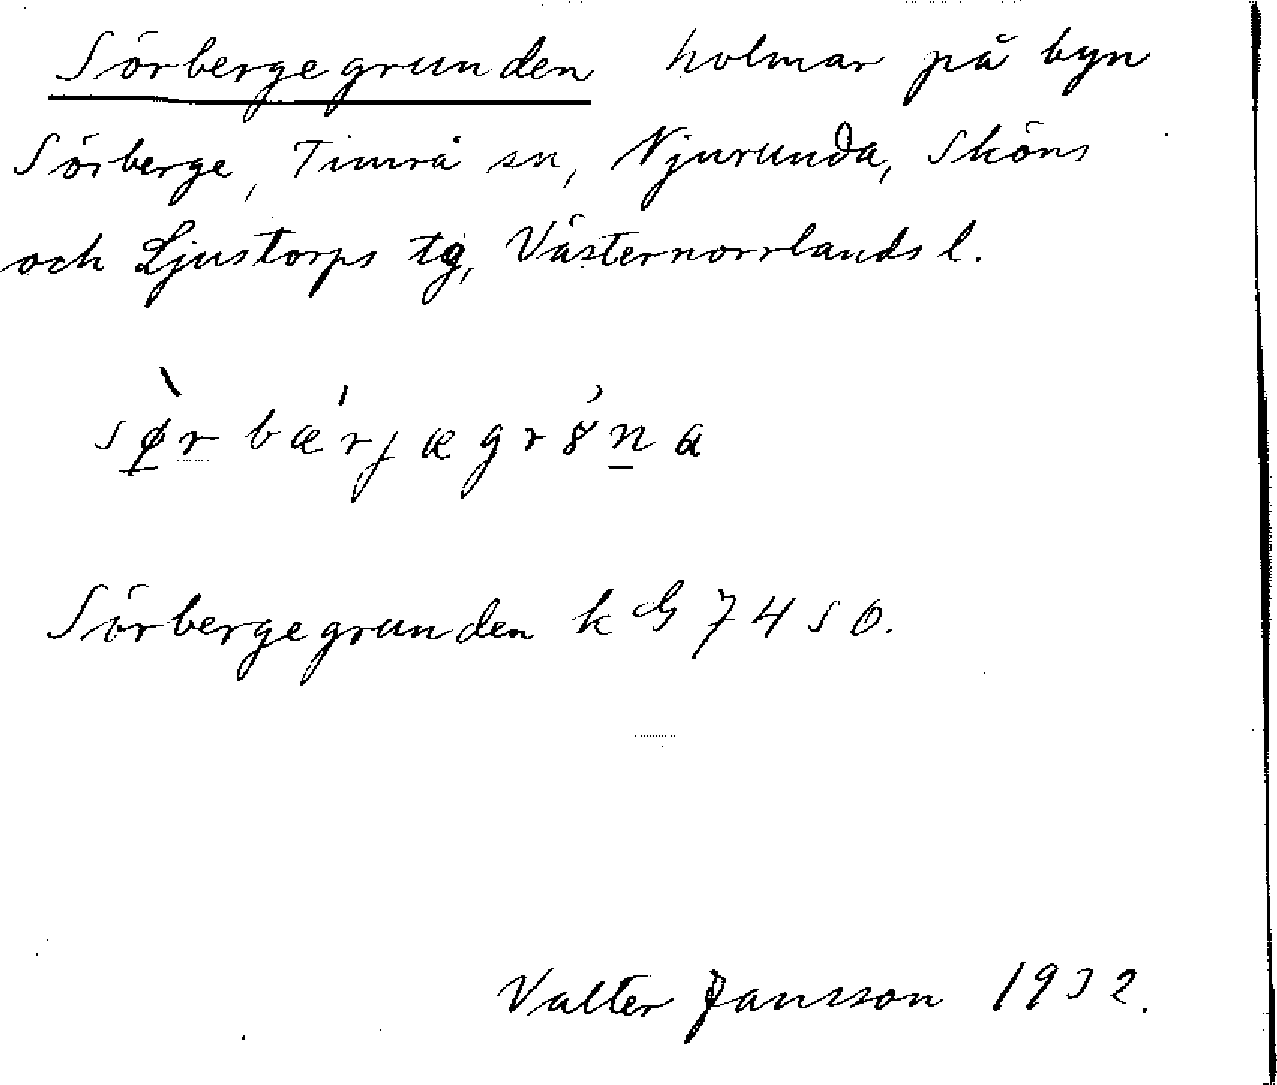 Sörbergegrunden holmar på byn
Sörberge, Timrå sn, Njurunda, Sköns
och Ljustorps tg, Västernorrlands l.
sø̀r bæ'rjægrȣ́na
Sörbergegrunden k G 74 s o.
Valter Jansson 1932.